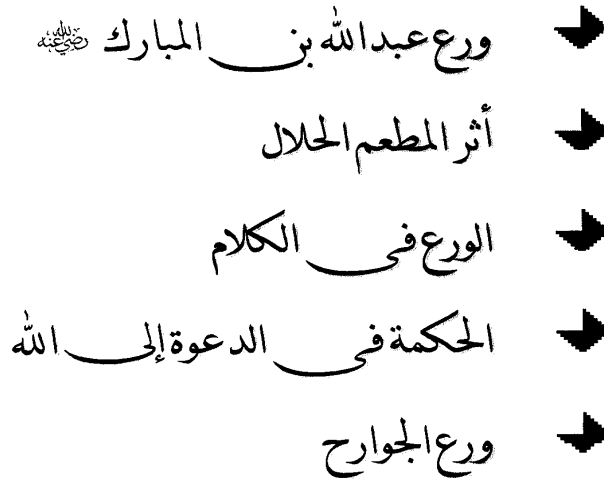 ورع عبدالله بن المبارك رضي الله عنه
أثر المطعم الحلال
الورع في الكلام
الحكمة في الدعوة إلى الله
ورع الجوارح